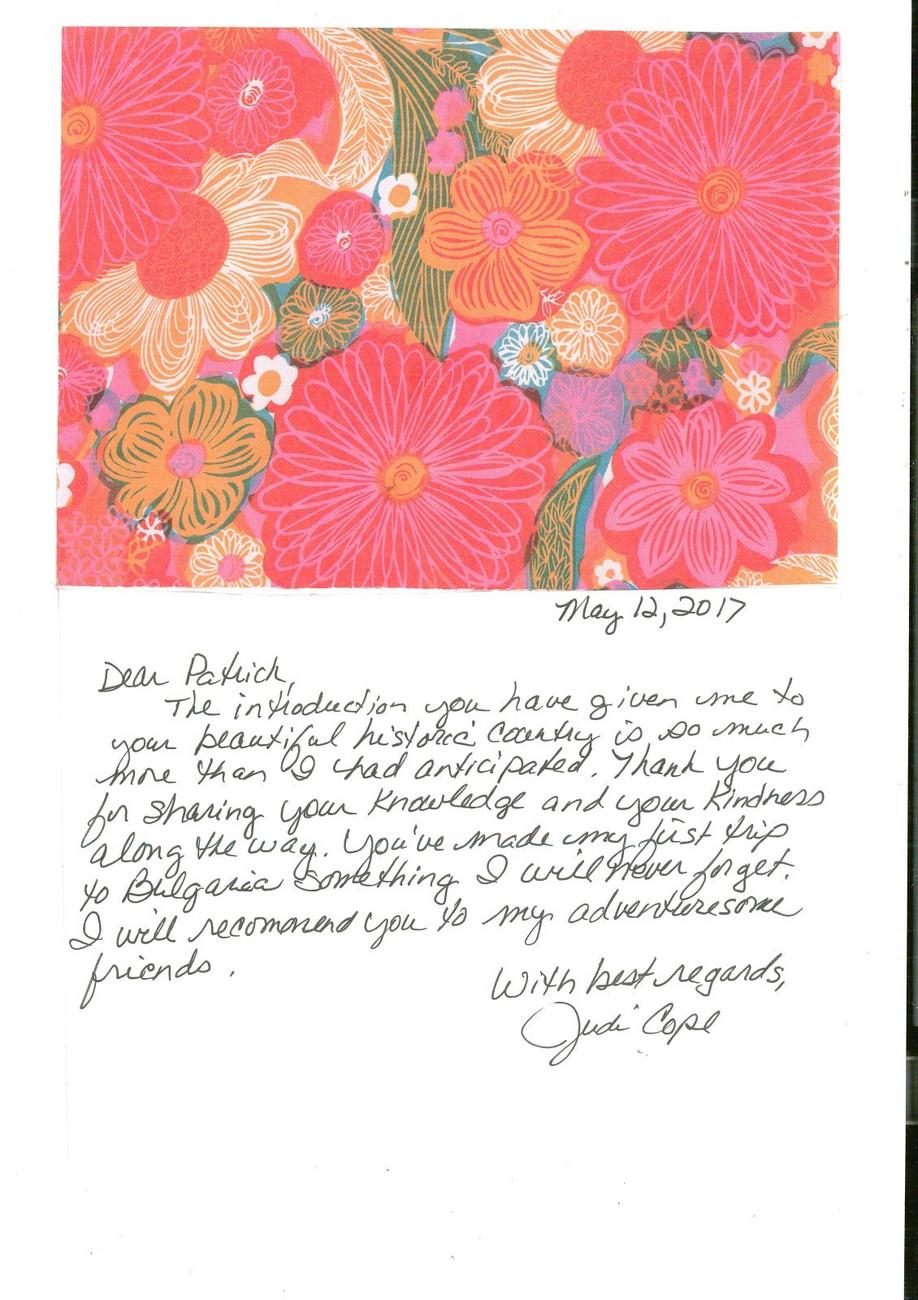 May 12, 2017
Dear Patrick,
The introduction you have given me to
your beautiful historic country is so much
more than I had anticipated. Thank you
for sharing your knowledge and your kindness
along the way. You've made my first trip
to Bulgaria something I will never forget.
I will recommend you to my adventuresome
friends.
With best regards,
Judi Cope